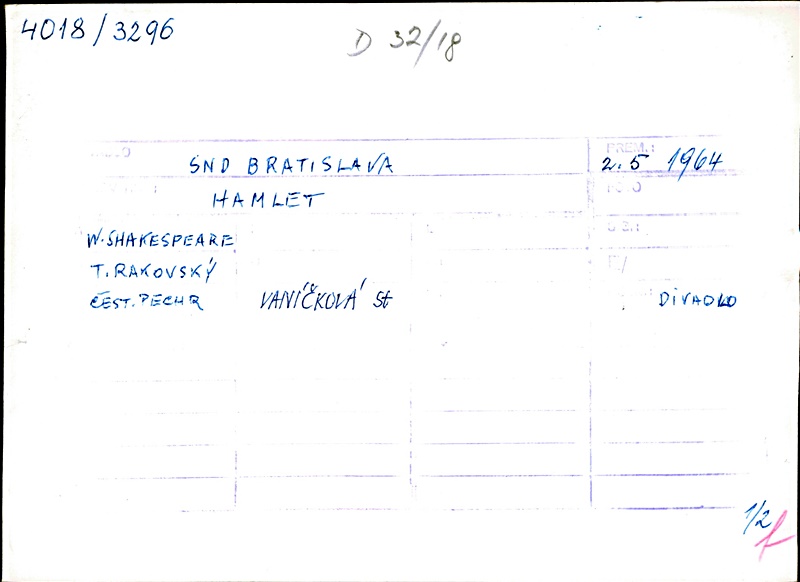 4018/3296
D 32/18
SND BRATISLAVA
PREM.:
2.5 1964
HAMLET
FOTO
W. SHAKESPEARE
T. RAKOVSKÝ
ČEST. PECHR
VANÍČKOVÁ St
DIVADLO
1/2